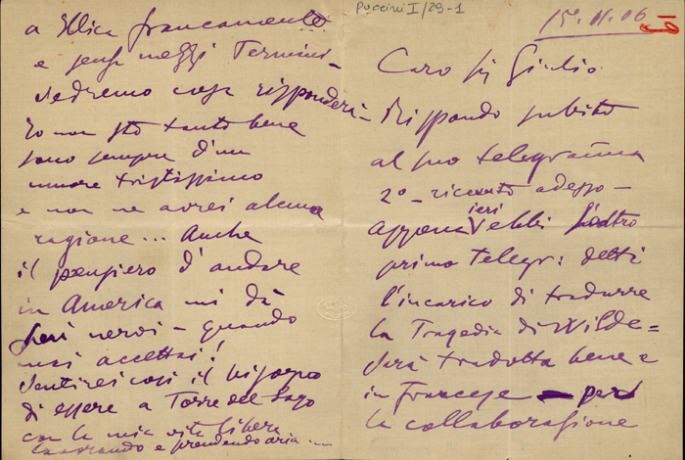 Puccini I/29-1
15. 11. 06
Caro Sig Giulio
Rispondo subito
al suo telegramma
2º ricevuto adesso –
appena ieri ebbi l'altro
primo Telegr: detti
l'incarico di tradurre
la Tragedia di Wilde =
Sarà tradotta bene e
in francese – per
la collaborazione
a Illica francamente
e senza mezzi Termini –
Vedremo cosa risponderà –
Io non sto tanto bene
sono sempre d'un
umore tristissimo
e non ne avrei alcuna
ragione... Anche
il pensiero d'andare
in America mi dà
nervi – quando
mai accettai!
Sentirei così il bisogno
di essere a Torre del Lago
con la mia vita libera
lavorando e prendendo aria ....